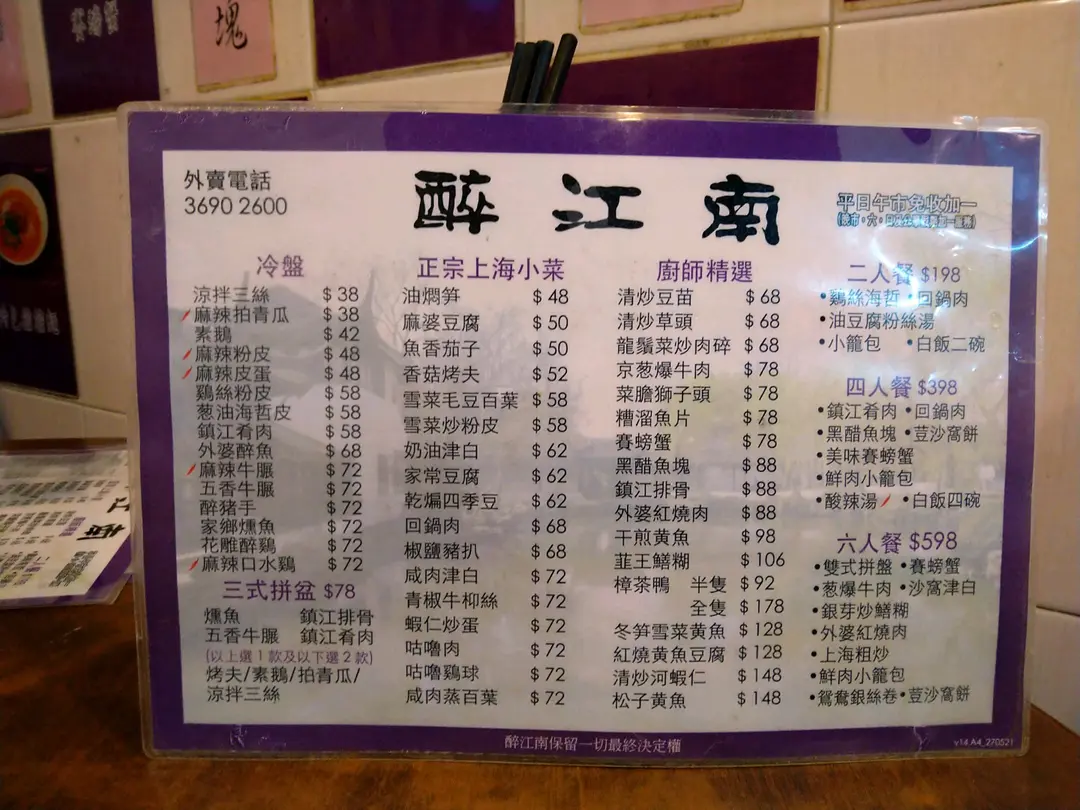 塊
外賣電話
3690 2600
醉江南
平日午市免收加一
冷盤
涼拌三絲 $38
麻辣拍青瓜 $38
素鵝 $42
麻辣粉皮 $48
麻辣皮蛋 $48
鷄絲粉皮 $58
葱油海哲皮 $58
鎮江肴肉 $58
外婆醉魚 $68
麻辣牛𦟌 $72
五香牛𦟌 $72
醉豬手 $72
家鄉燻魚 $72
花雕醉鷄 $72
麻辣口水鷄 $72
三式拼盆 $78
燻魚 鎮江排骨
五香牛𦟌 鎮江肴肉
(以上選1款及以下選2款)
烤夫/素鵝/拍青瓜/
涼拌三絲
正宗上海小菜
油燜笋 $48
麻婆豆腐 $50
魚香茄子 $50
香菇烤夫 $52
雪菜毛豆百葉 $58
雪菜炒粉皮 $58
奶油津白 $62
家常豆腐 $62
乾煸四季豆 $62
回鍋肉 $68
椒鹽豬扒 $68
咸肉津白 $72
青椒牛柳絲 $72
蝦仁炒蛋 $72
咕嚕肉 $72
咕嚕鷄球 $72
咸肉蒸百葉 $72
廚師精選
清炒豆苗 $68
清炒草頭 $68
龍鬚菜炒肉碎 $68
京葱爆牛肉 $78
菜膽獅子頭 $78
糟溜魚片 $78
賽螃蟹 $78
黑醋魚塊 $88
鎮江排骨 $88
外婆紅燒肉 $88
干煎黃魚 $98
韮王鱔糊 $106
樟茶鴨 半隻 $92
全隻 $178
冬笋雪菜黃魚 $128
紅燒黃魚豆腐 $128
清炒河蝦仁 $148
松子黃魚 $148
二人餐 $198
•鷄絲海哲 •回鍋肉
•油豆腐粉絲湯
•小籠包 •白飯二碗
四人餐 $398
•鎮江肴肉 •回鍋肉
•黑醋魚塊 •荳沙窩餅
•美味賽螃蟹
•鮮肉小籠包
•酸辣湯 •白飯四碗
六人餐 $598
•雙式拼盤 •賽螃蟹
•葱爆牛肉 •沙窩津白
•銀芽炒鱔糊
•外婆紅燒肉
•上海粗炒
•鮮肉小籠包
•鴛鴦銀絲卷 •荳沙窩餅
醉江南保留一切最終決定權
v14.A4_270521